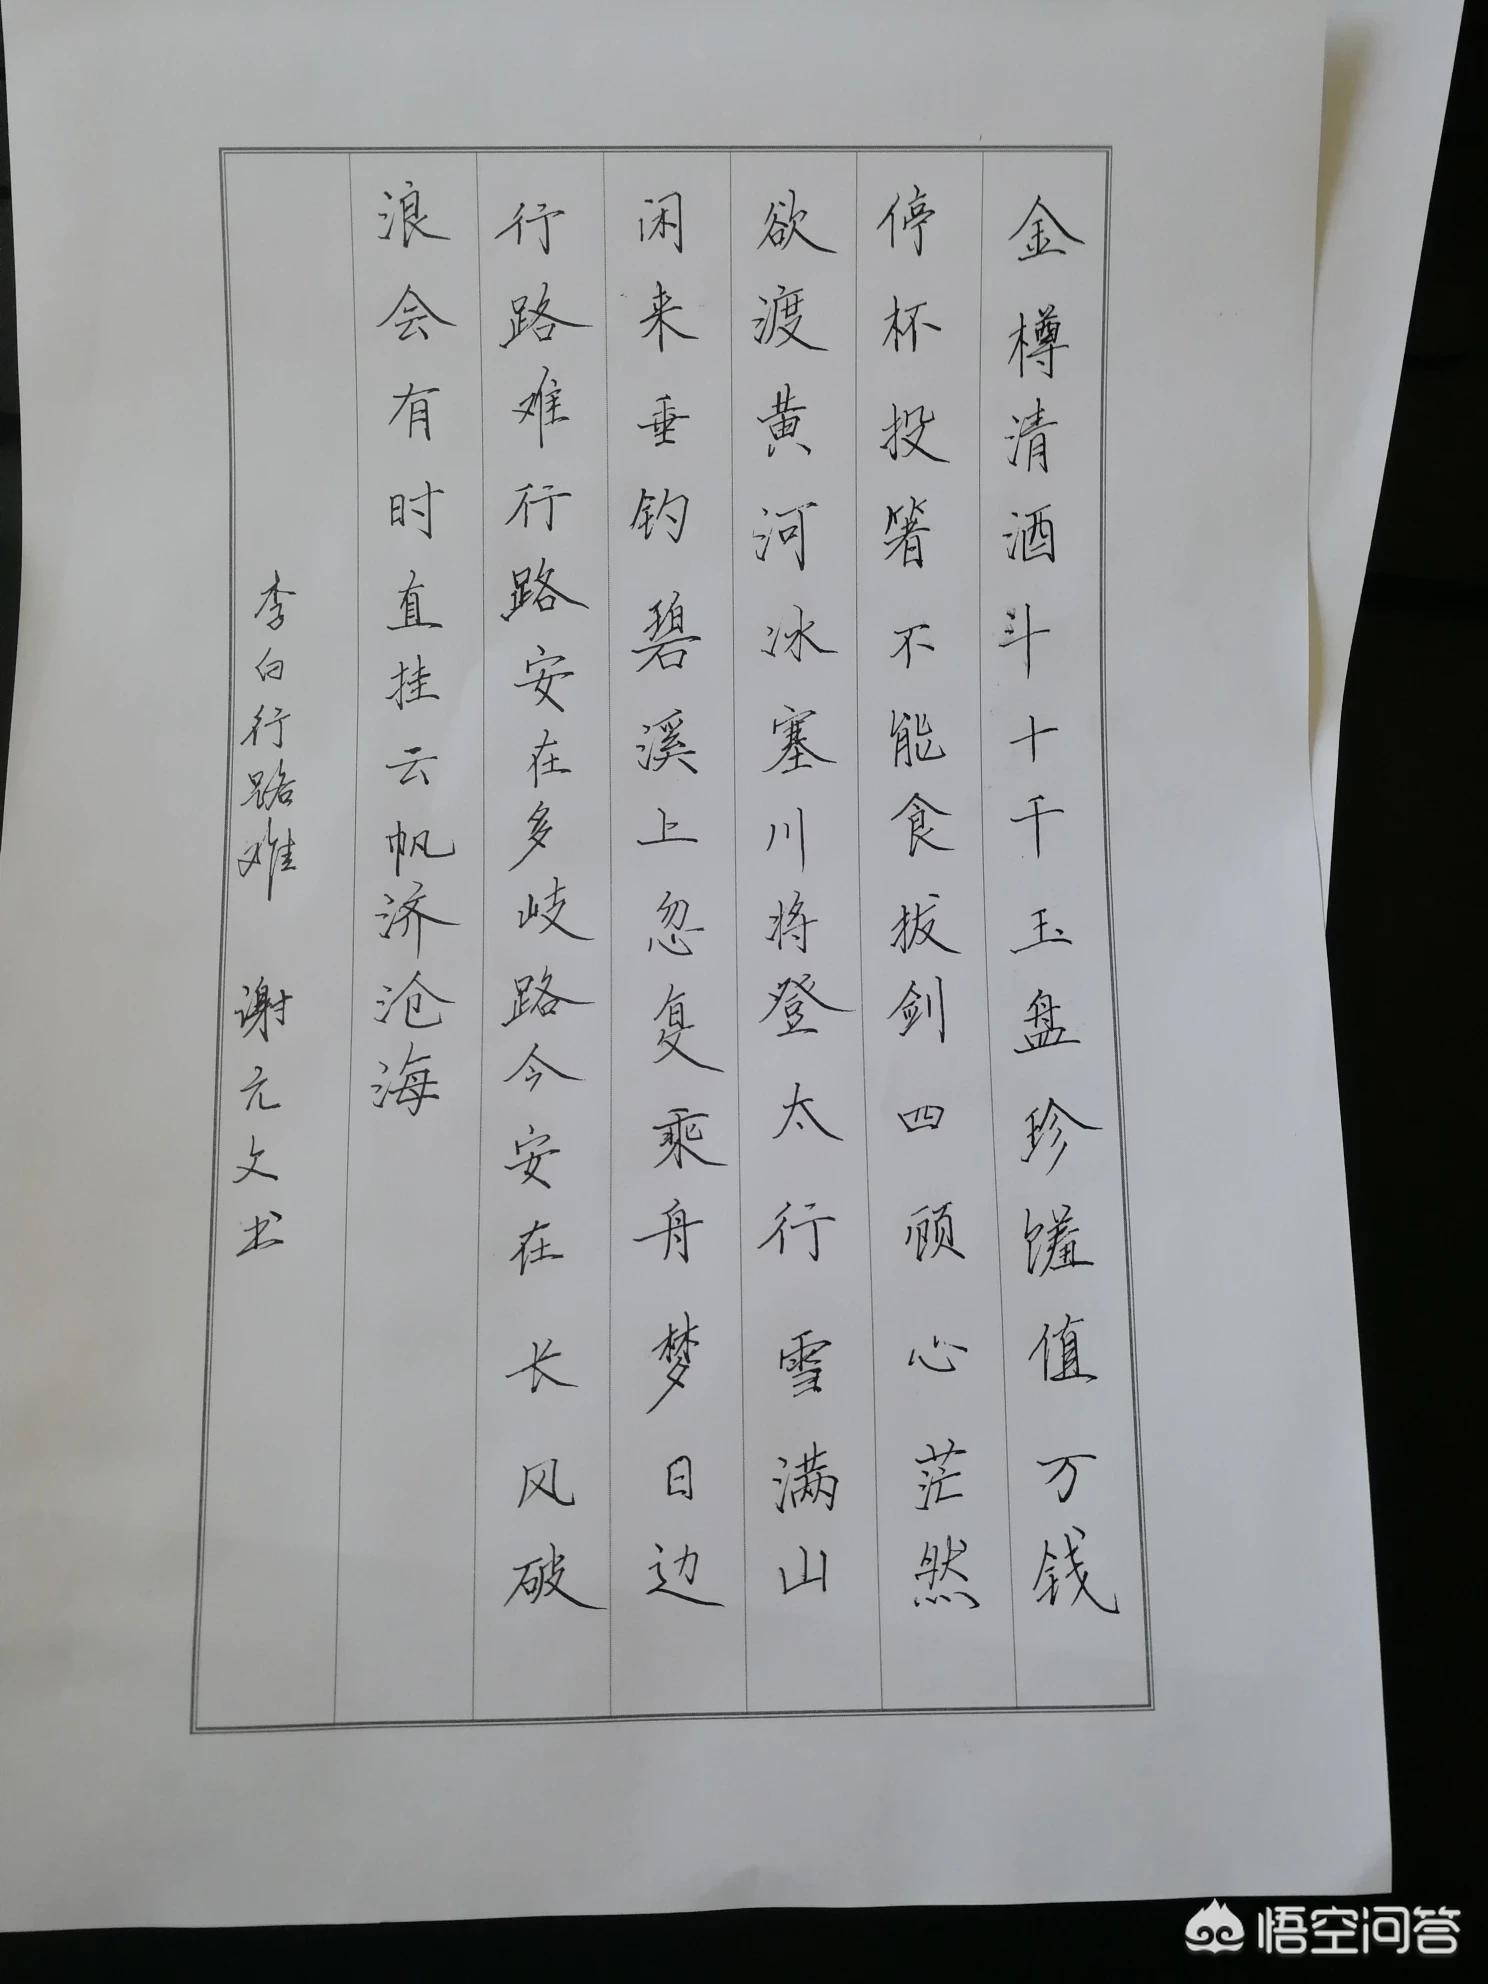 金樽清酒斗十千玉盘珍馐值万钱
停杯投箸不能食拔剑四顾心茫然
欲渡黄河冰塞川将登太行雪满山
闲来垂钓碧溪上忽复乘舟梦日边
行路难行路安在多歧路今安在长风破
浪会有时直挂云帆济沧海
李白行路难 谢元文书
悟空问答